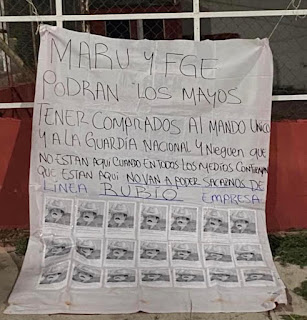 MARU Y FGE
PODRAN LOS MAYOS
TENER COMPRADOS AL MANDO UNICO
Y A LA GUARDIA NACIONAL Y NieGUEN QUE
NO ESTAN AQUI CUANDO EN TODOS LOS MEDIOS CONFIRMAN
QUE ESTAN AQUI NO VAN A PODER SACARNOS DE
LINEA RUBIO EMPRESA